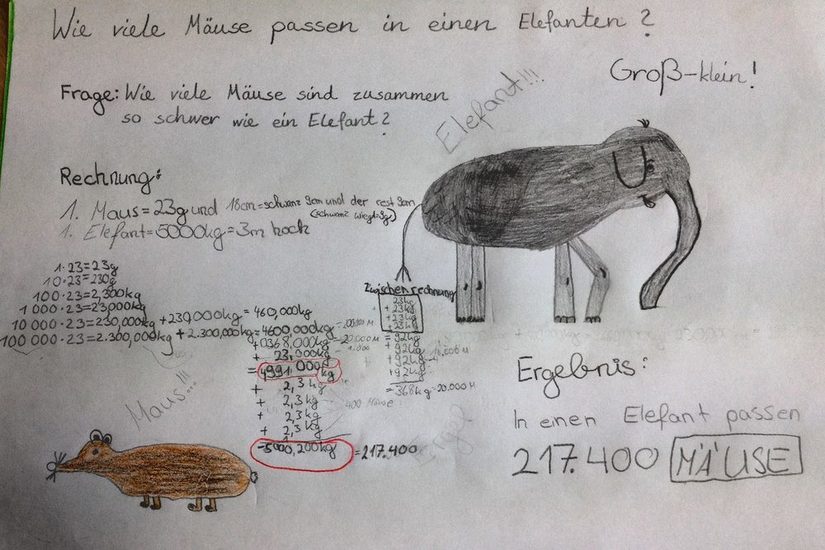 Wie viele Mäuse passen in einen Elefanten?
Groß-klein!
Elefant!!!
Frage: Wie viele Mäuse sind zusammen
so schwer wie ein Elefant?
Rechnung:
1. Maus=23g und 18cm=schwanz 9cm und der rest 9cm
(schwanz wiegt=3g)
1. Elefant=5000kg=3m hoch
1·23=23g
10·23=230g
100·23=2,300kg
1 000·23=23,000kg
10 000·23=230,000kg +230,000kg = 460,000kg
100 000·23=2.300,000kg + 2.300,000kg = 4600,000kg
+0368,000kg
+ 23,000kg
= 4991,000kg
+ 2,3 kg
+ 2,3 kg
+ 2,3 kg
+ 2,3 kg
400 Mäuse
=5000,200kg =217.400
Zwischenrechnung
23kg
+23kg
+23kg
+23kg
= 92kg
+92kg
+92kg
+92kg
= 368kg=
Maus!!!
Ergebnis:
In einen Elefant passen
217.400 MÄUSE